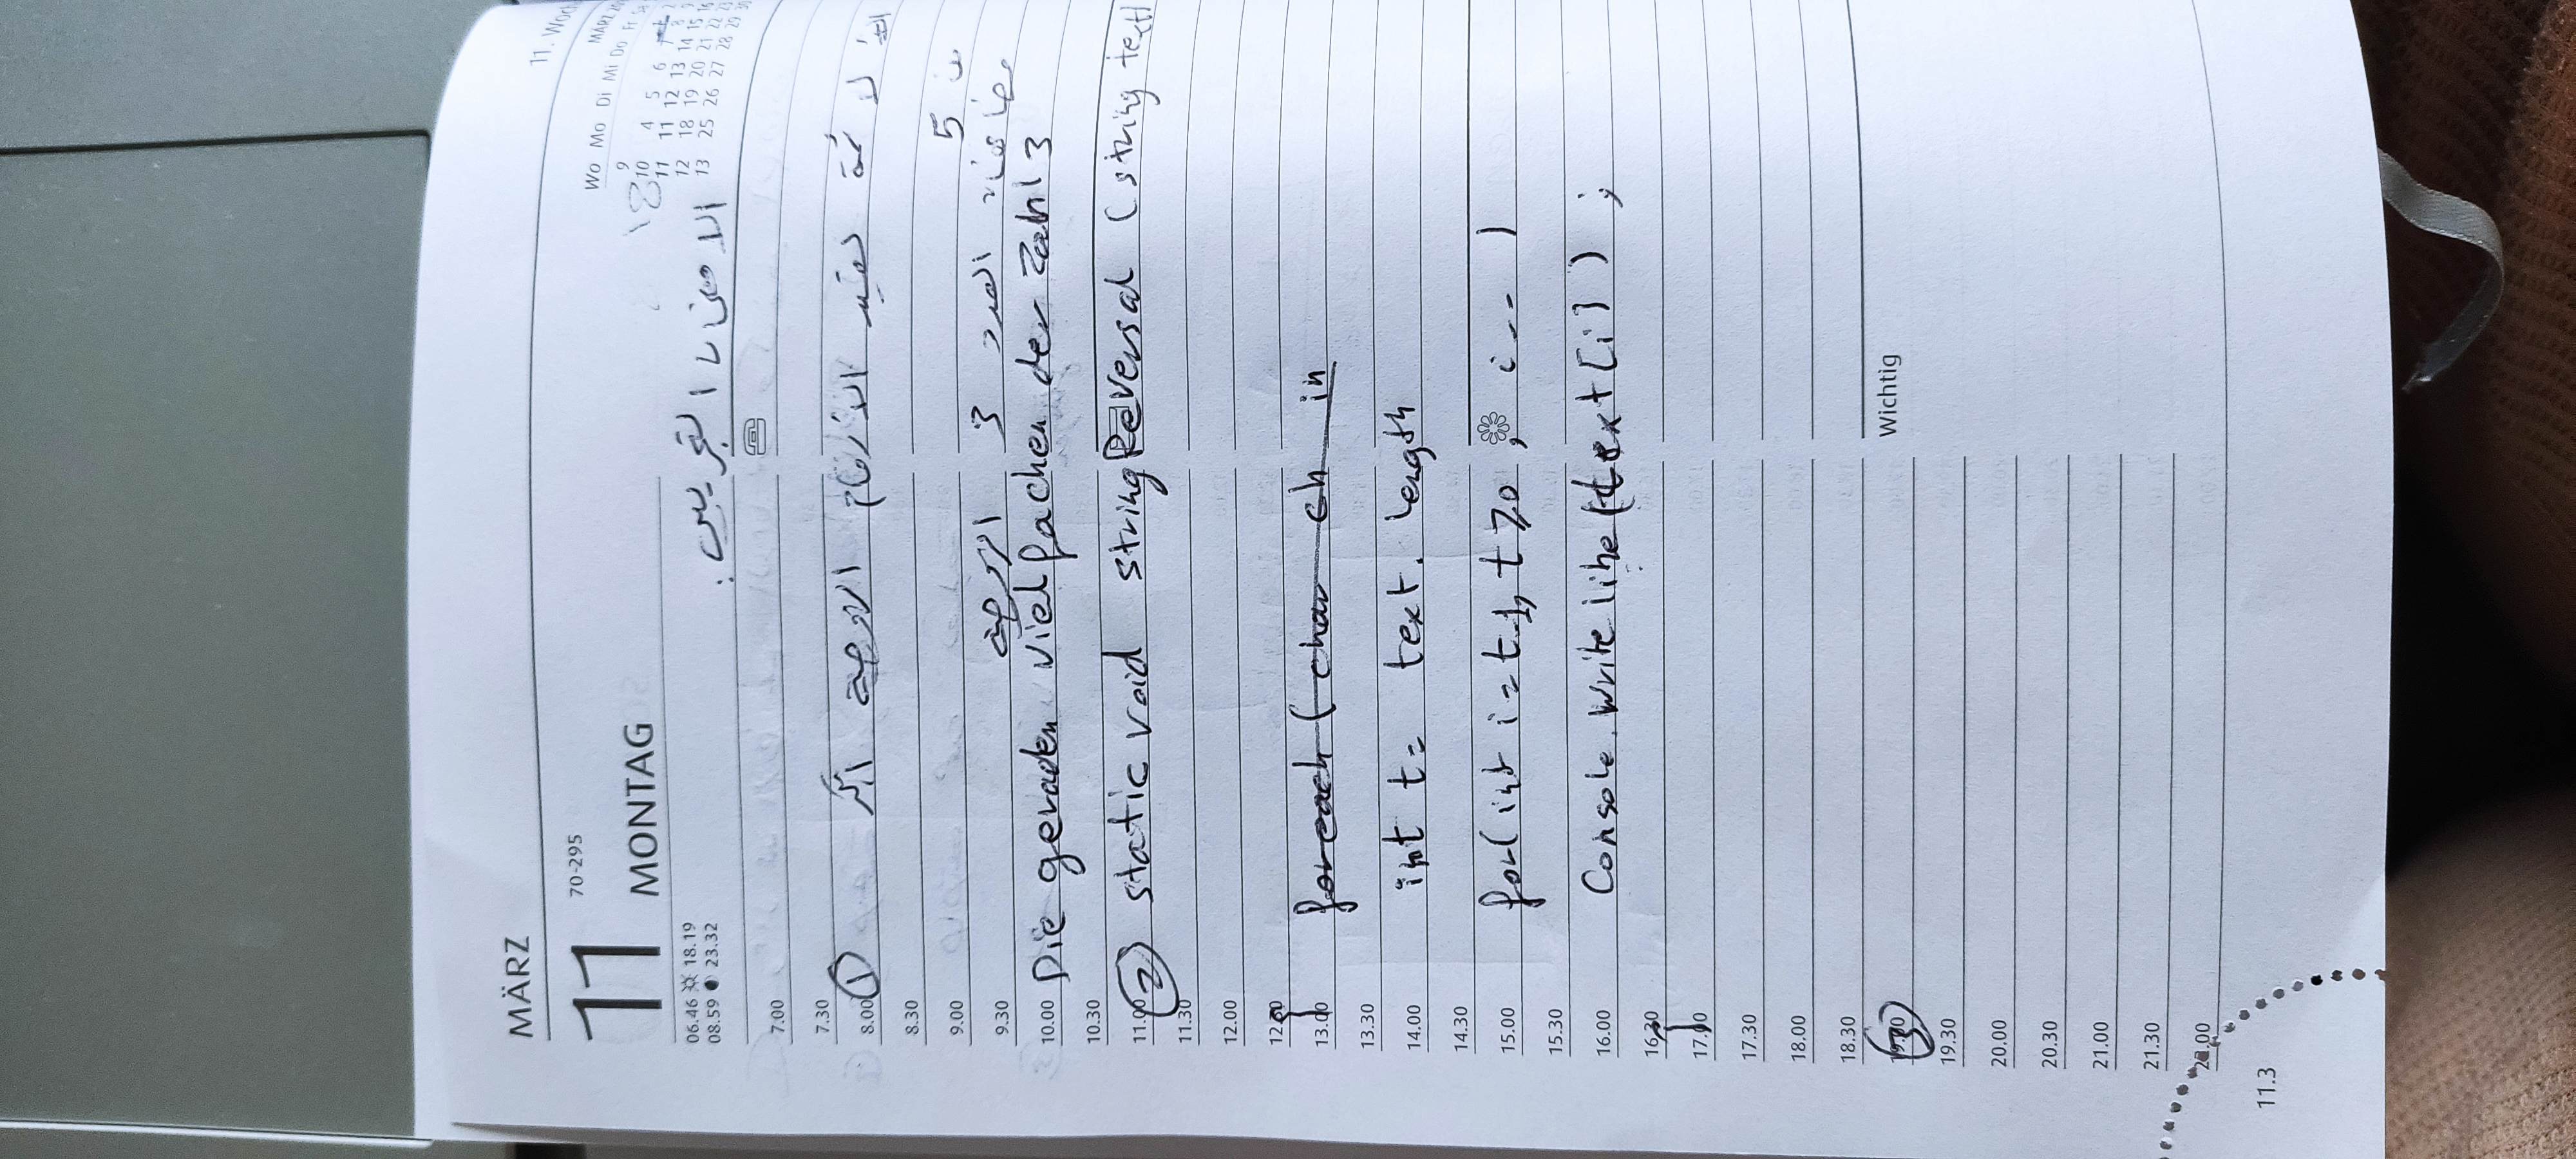 MÄRZ
11. Woch
11
70-295
MONTAG
06.46 18.19
08.59 23.32
MÄRZ 20
Wo Mo Di Mi Do Fr Sa
9 1 2
10 4 5 6 7 8 9
11 11 12 13 14 15 16
12 18 19 20 21 22 23
13 25 26 27 28 29 30
الامتحان التجريبي:
7.00
7.30
8.00 ① لائمة تفيد الأرقام الزوجية أكبر
8.30
9.00 من 5
9.30 مضاعفات العدد 3 الزوجية
10.00 Die geraden vielfachen der Zahl 3
10.30
11.00 ② static void stringReversal (string text)
11.30
12.00
12.30 {
13.00 foreach ( char ch in
13.30
14.00 int t= text. length
14.30
15.00 for( int i=t-1, t≥0 ; i-- )
15.30
16.00 Console. Write line (text[i] ) ;
16.30 }
17.00
17.30
18.00
18.30
Wichtig
19.00 ③
19.30
20.00
20.30
21.00
21.30
22.00
11.3